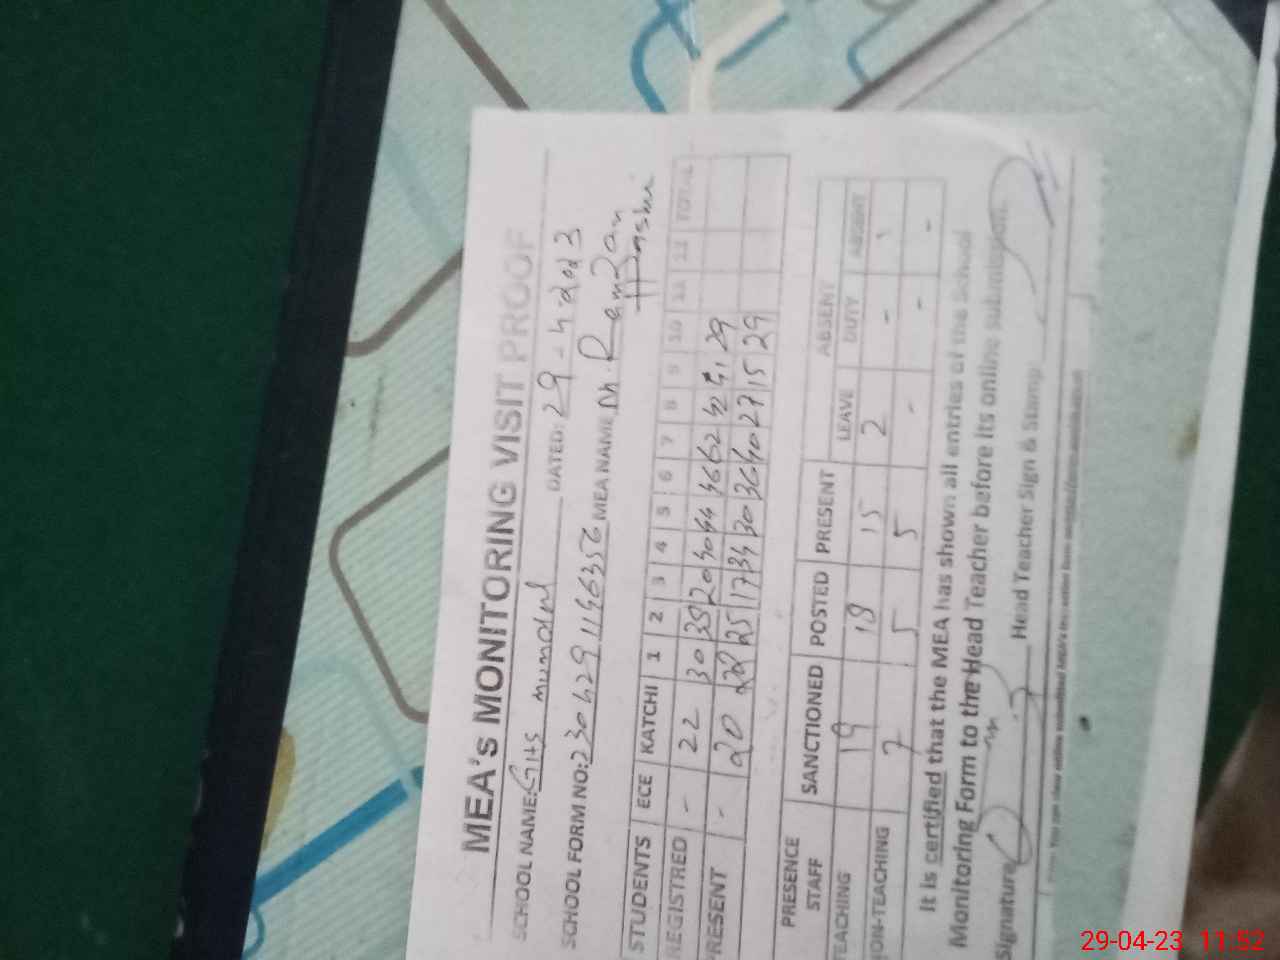 MEA's MONITORING VISIT PROOF
SCHOOL NAME: GHS DATED: 29-4-2023
SCHOOL FORM NO: MEA NAME Ramzan
Hashmi
STUDENTS ECE KATCHI 1 2 3 4 5 6 7 8 9 10 11 12 TOTAL
REGISTRED - 22 30 35 20 40 44 46 62 42 41 29
PRESENT - 20 28 25 17 34 30 36 40 27 15 29
PRESENCE SANCTIONED POSTED PRESENT ABSENT
STAFF LEAVE DUTY ABSENT
TEACHING 19 18 15 2 - 1
NON-TEACHING 7 5 5 - - -
It is certified that the MEA has shown all entries of the School
Monitoring Form to the Head Teacher before its online submission.
Signature Head Teacher Sign & Stamp:
29-04-23 11:52